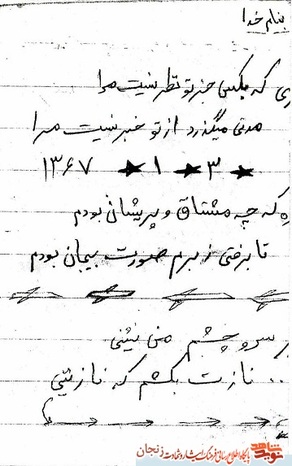 بنام خدا
ری که بکسی جز تو نظر نیست مرا
مدتی میگذرد از تو خبر نیست مرا
۱۳۶۷ ★ ۱ ★ ۳ ★
ه که چه مشتاق و پریشان بودم
تا برفتی ز برم صورت بیجان بودم
بر سر و چشم من نشینی
.. نازت بکشم که نازنینی
نوید شاهد
پایگاه اطلاع رسانی فرهنگ ایثار و شهادت زنجان